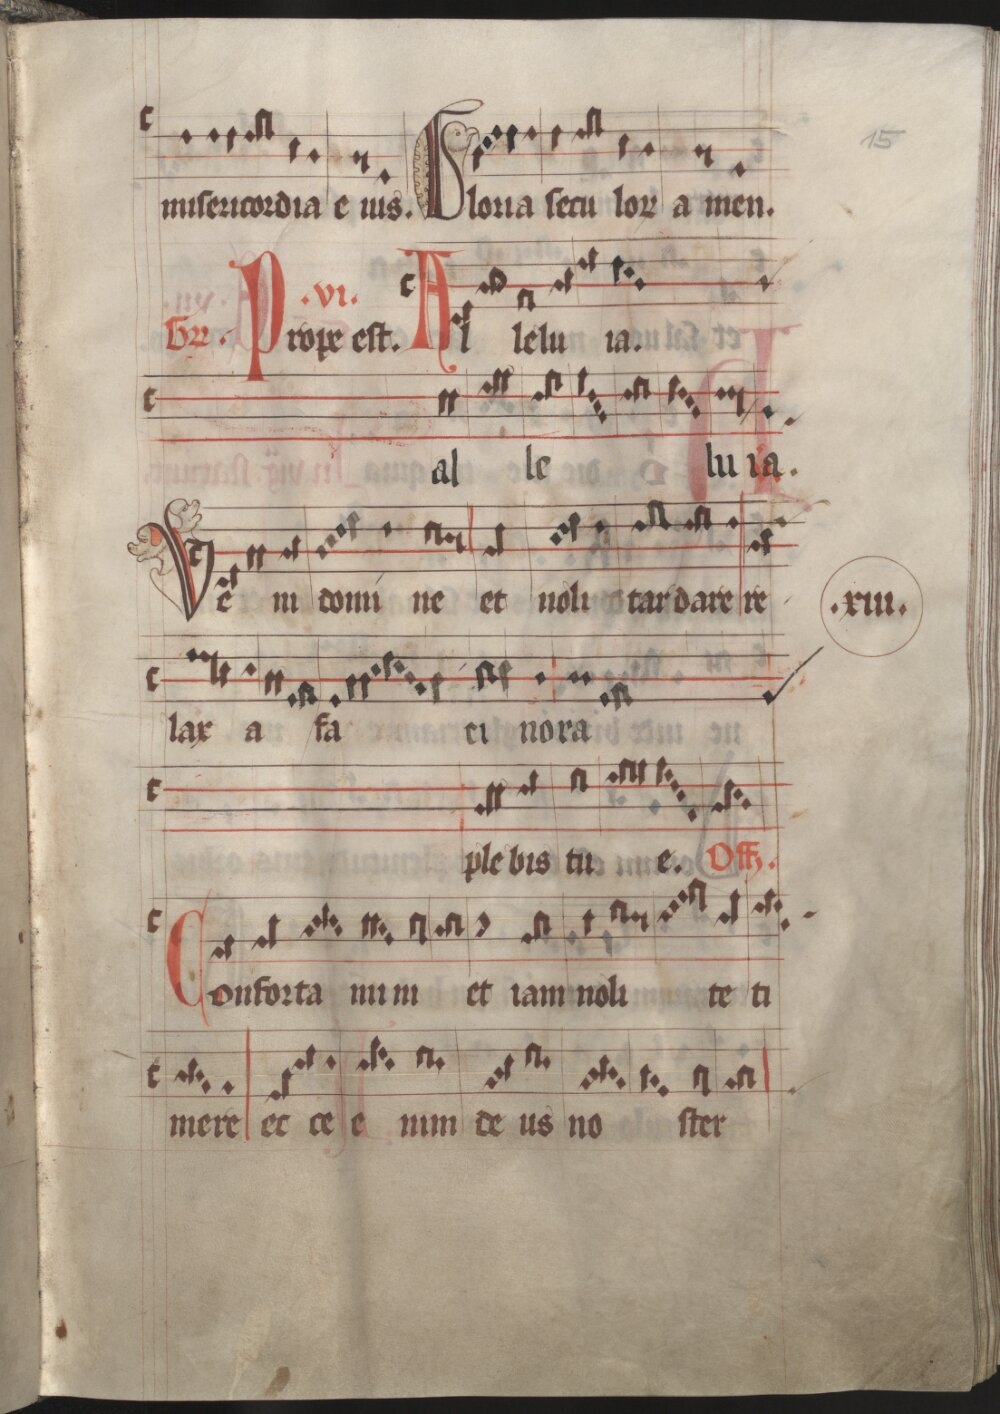 15
misericordia e ius. Gloria secu lorꝝ a men.
Grꝝ. Prope est. .vi. Al lelu ia.
al le lu ia.
Ve ni domi ne et noli tardare re
.xiii.
lax a fa ci nora
ple bis tu e. Off.
Conforta mini et iam noli te ti
mere ec ce e nim de us no ster